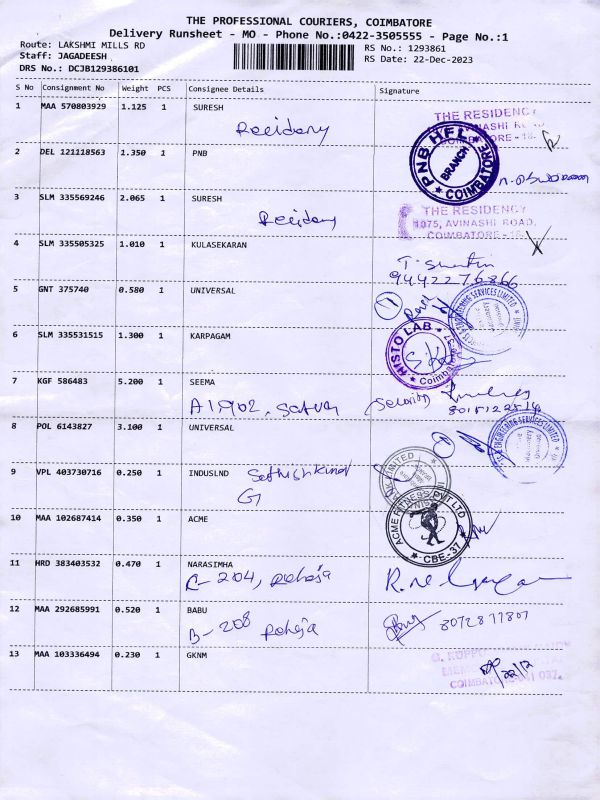 THE PROFESSIONAL COURIERS, COIMBATORE
Delivery Runsheet - MO - Phone No.:0422-3505555 - Page No.:1
Route: LAKSHMI MILLS RD
Staff: JAGADEESH
DRS No.: DCJB129386101
RS No.: 1293861
RS Date: 22-Dec-2023
S No Consignment No Weight PCS Consignee Details Signature
1 MAA 570803929 1.125 1 SURESH
THE RESIDENCY
AVINASHI
COIMBATORE - 18.
2 DEL 121118563 1.350 1 PNB
PNB HFL BRANCH ★ COIMBATORE ★
3 SLM 335569246 2.065 1 SURESH
THE RESIDENCY
1075, AVINASHI ROAD,
COIMBATORE - 18.
4 SLM 335505325 1.010 1 KULASEKARAN
9442276866
5 GNT 375740 0.580 1 UNIVERSAL
ENGINEERING SERVICES LIMITED
6 SLM 335531515 1.300 1 KARPAGAM
HISTO LAB ★ Coimbatore
7 KGF 586483 5.200 1 SEEMA
Security
8 POL 6143827 3.100 1 UNIVERSAL
ENGINEERING SERVICES LIMITED
9 VPL 403730716 0.250 1 INDUSLND
G
LIMITED
10 MAA 102687414 0.350 1 ACME
ACME FITNESS PVT LTD ★ CBE-37 ★
11 HRD 383403532 0.470 1 NARASIMHA
C-204, Raheja
12 MAA 292685991 0.520 1 BABU
B-208 Raheja
8072877807
13 MAA 103336494 0.230 1 GKNM
22/12